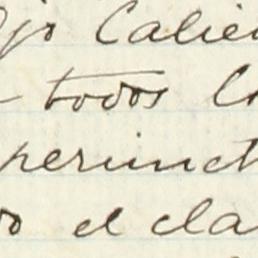 ojo Calien
todos l
perimet
o el cla